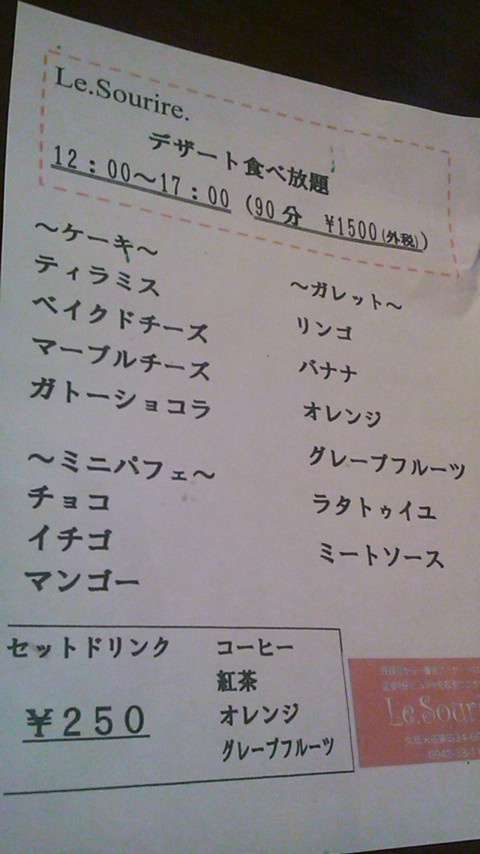 Le.Sourire.
デザート食べ放題
12：00～17：00 (90分 ¥1500(外税))
～ケーキ～
ティラミス
ベイクドチーズ
マーブルチーズ
ガトーショコラ
～ミニパフェ～
チョコ
イチゴ
マンゴー
～ガレット～
リンゴ
バナナ
オレンジ
グレープフルーツ
ラタトゥイユ
ミートソース
セットドリンク
￥２５０
コーヒー
紅茶
オレンジ
グレープフルーツ
Le.Sour